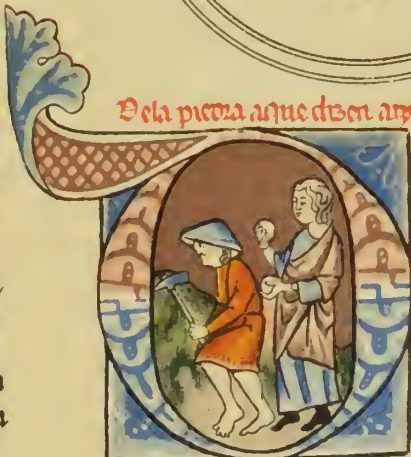 Dela piedra aque dizen
a
a